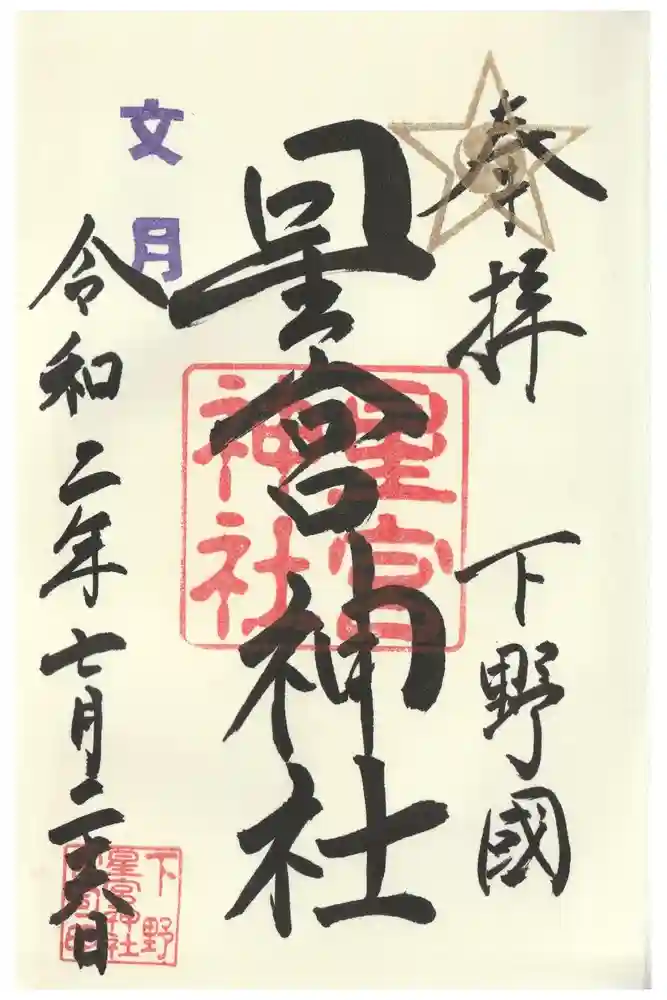 奉拝 下野國
星宮神社
星宮神社
文月
令和二年七月二十六日
下野
星宮神社